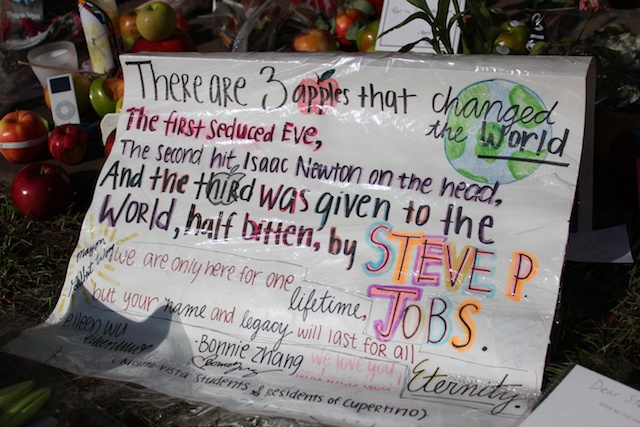 There are 3 apples that changed
the World
The first seduced Eve,
The second hit Isaac Newton on the head,
And the third was given to the
World, half bitten, by STEVE P.
JOBS.
We are only here for one lifetime,
but your name and legacy will last for all
Eternity.
eileen wu
-Bonnie Zhang
we love you
Students & residents of Cupertino)
Dear